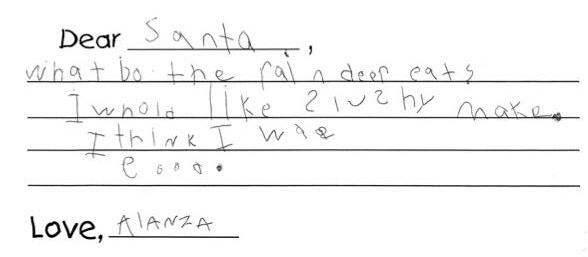 Dear Santa,
what bo the raindeer eats
I whold like 2 make.
I think I was
Love, AlANZA